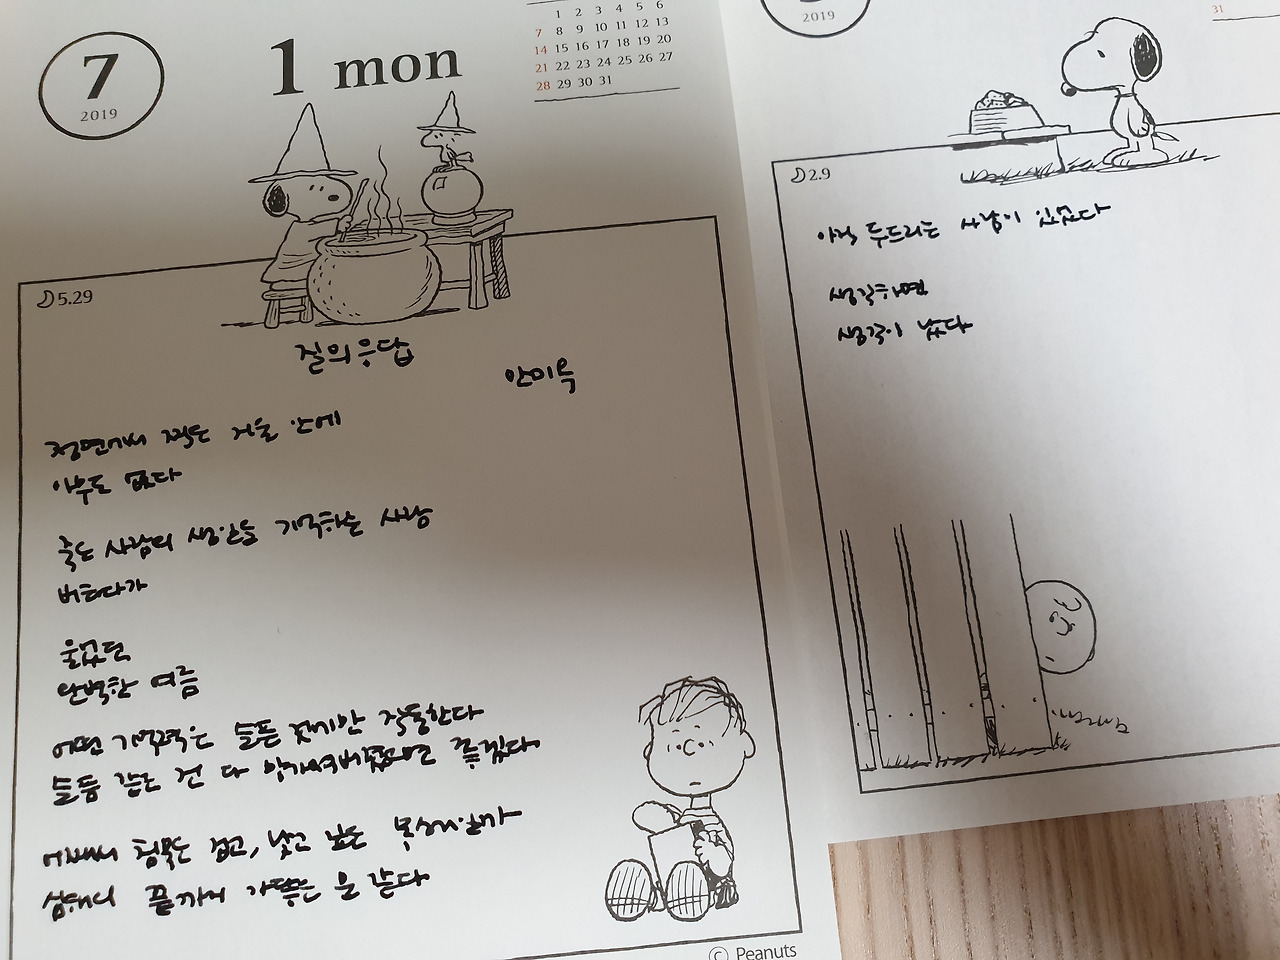 7
2019
1 mon
1 2 3 4 5 6
7 8 9 10 11 12 13
14 15 16 17 18 19 20
21 22 23 24 25 26 27
28 29 30 31
5.29
질의응답
안미옥
정면에서 찍은 거울 안에
아무도 없다
죽은 사람의 생일을 기억하는 사람
버티다가
울었던
완벽한 여름
어떤 기억력은 슬픔 것에만 작동한다
슬픔 같은 건 다 망가져버렸으면 좋겠다
어째서 침묵은 검고, 낮고 깊은 목소리일까
심해의 끝까지 가닿은 문 같다
© Peanuts
2019
31
2.9
아직 두드리는 사람이 있었다
생각하면
생각이 났다